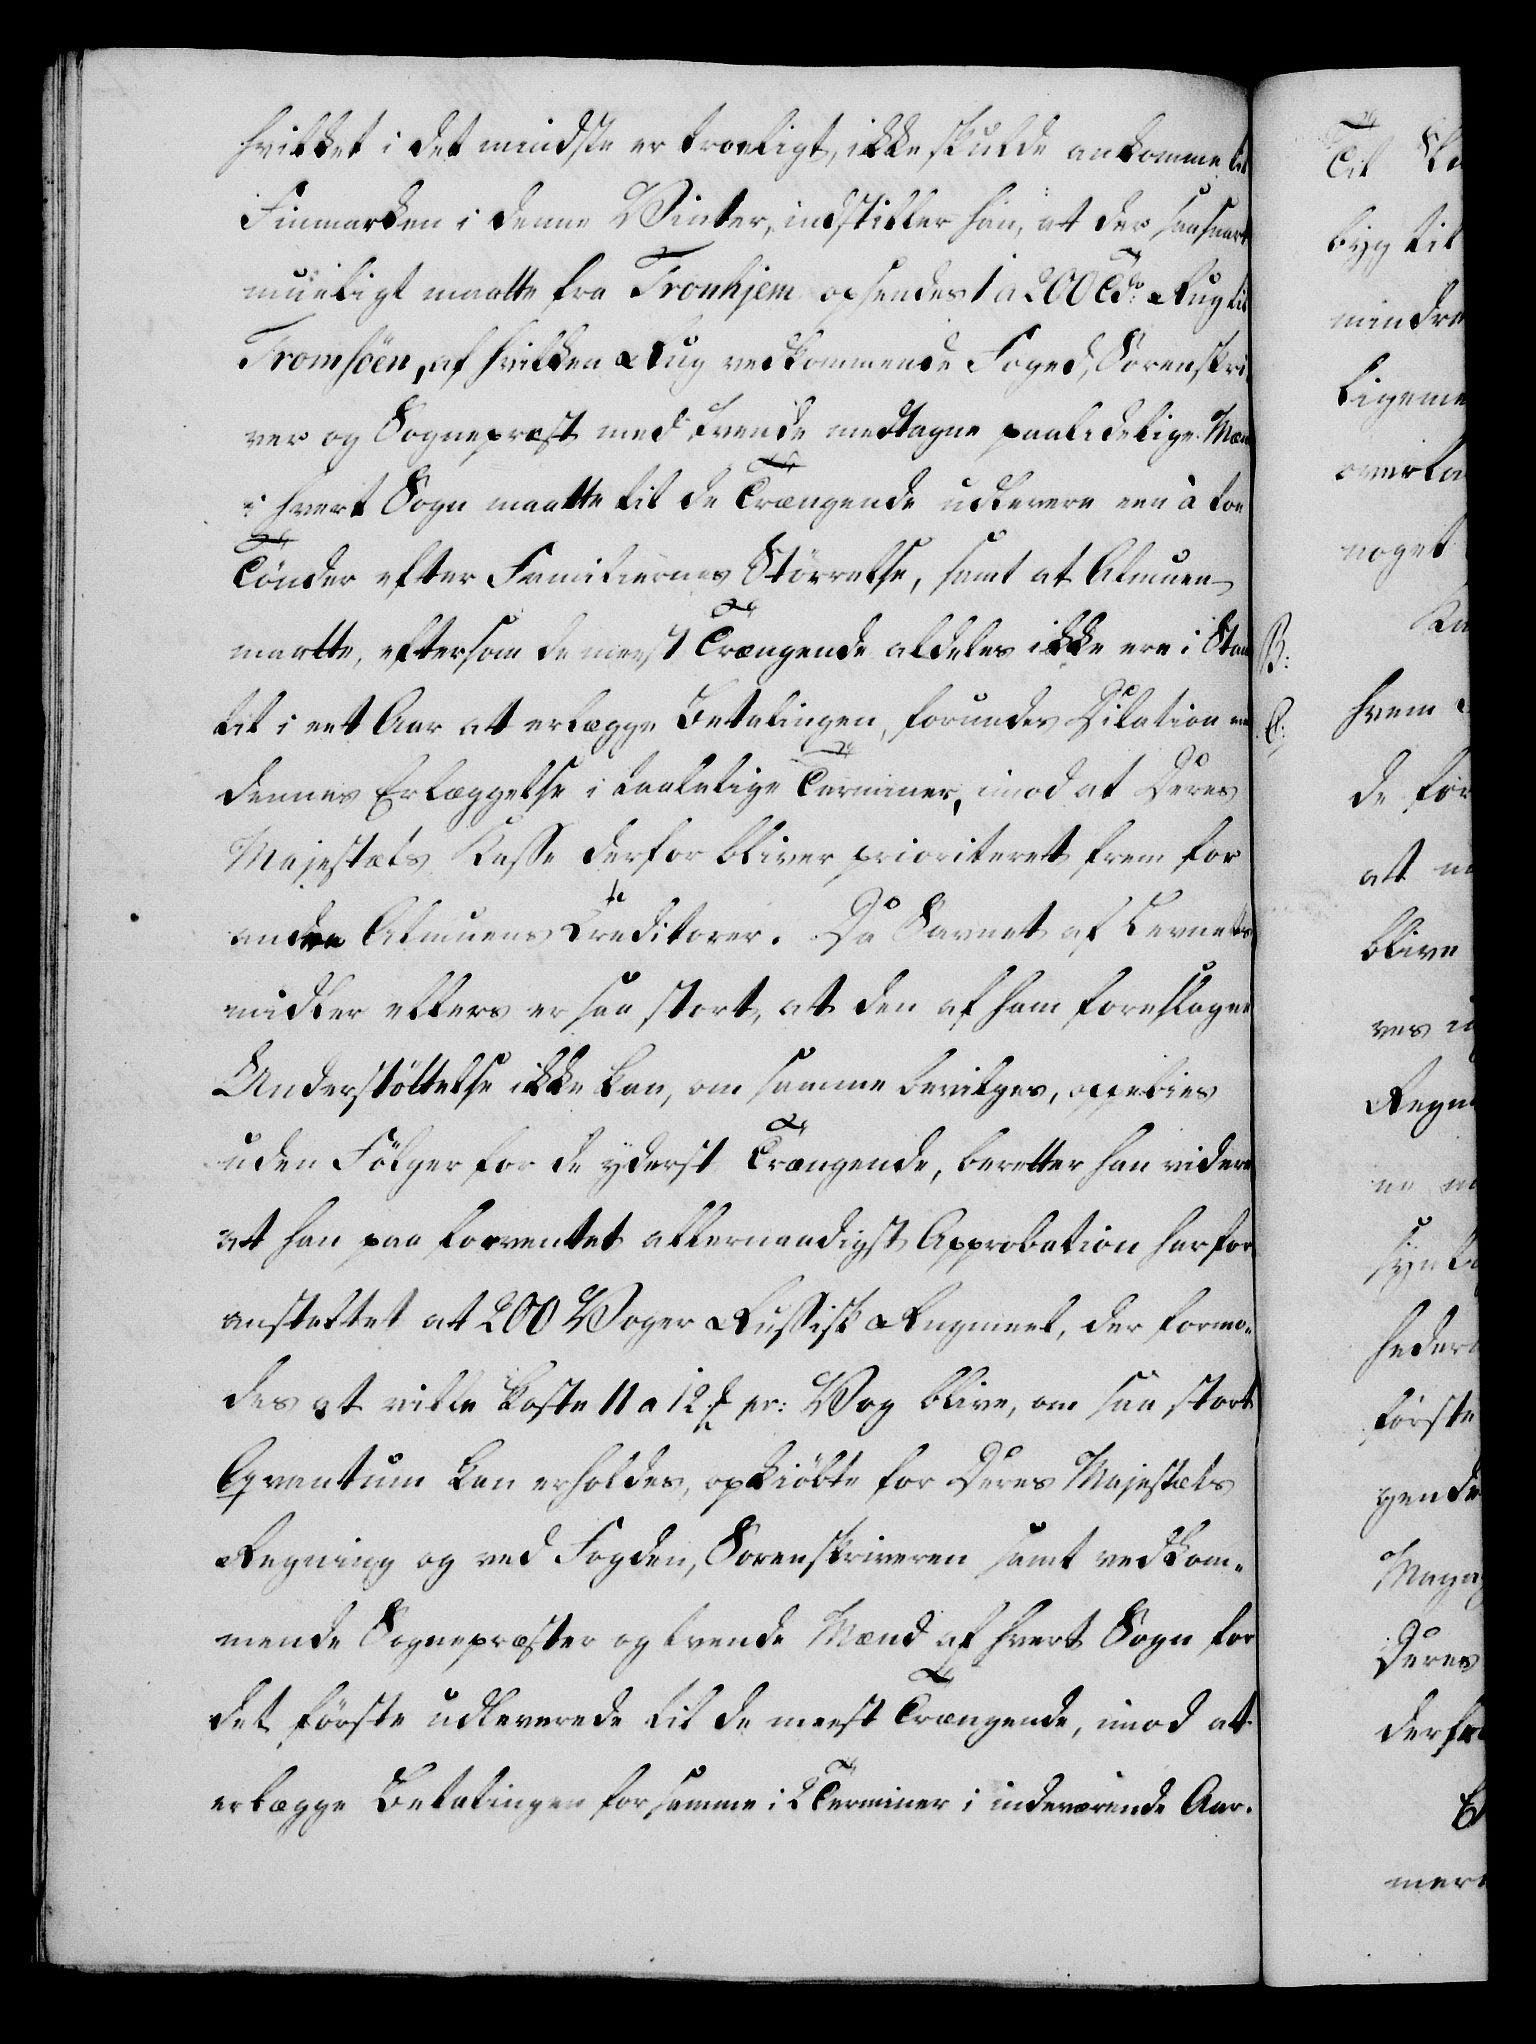 hvilket i det mindste er troeligt, ikke skulde ankomme til
Finmarken i denne Vinter, indstiller han, at der saasnart
mueligt maatte fra Tronhjem opsendes 1 a 200 Tdr Rug til
Tromsöen, af hvilken Rug vedkommende Foged, Sorenskri-
ver og Sognepræst med tvende medtagne paalidelige Mænd
i hvert Sogn maatte til de Trængende udlevere een à toe
Tönder efter Familiernes Störrelse, samt at Almuen
maatte, eftersom de meest Trængende aldeles ikke ere i Stand
til i eet Aar at erlægge Betalingen, forundes Dilation med
dennes Erlæggelse i taalelige Terminer, imod at Deres
Majestæts Kasse derfor bliver prioriteret frem for
andre Almuens Creditorer. Da Savnet af Levnets
midler ellers er saa stort, at den af ham foreslagne
Understöttelse ikke kan, om samme bevilges, oppebies
uden Fölger for de yderst Trængende, beretter han videre
at han paa forventet allernaadigst Approbation har for
anstaltet at 200 Voger Russisk Rugmeel, der formo-
des at ville koste 11 a 12 ß pr: Vog blive, om saa stort
Qvantum kan erholdes, opkiöbte for Deres Majestæts
Regning og ved Fogden, Sorenskriveren samt vedkom-
mende Sognepræster og tvende Mænd af hvert Sogn for
det förste udleverede til de meest Trængende, imod at
erlægge Betalingen for samme i 2 Terminer i indeværende Aar.
Til
byg til
mindre
ligeme
overla
noget
B:
C:
hvem
de for
at
blive
ves
Regn
heder
förste
gende
Maga
Deres
derfra
mere